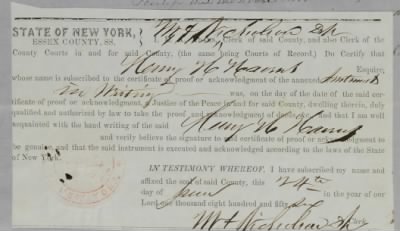 STATE OF NEW YORK,
ESSEX COUNTY, SS.
Clerk of the Courts of said County, and also Clerk of the
County Courts in and for said County, (the same being Courts of Record.) Do Certify that
Henry H Esquire,
whose name is subscribed to the certificate of proof or acknowledgment of the annexed Instrument
in Writing was, on the day of the date of said cer-
tificate of proof or acknowledgment, a Justice of the Peace in and for said County, dwelling therein, duly
qualified and authorized by law to take the proof and acknowledgment of deeds, &c. And that I am well
acquainted with the hand writing of the said Henry H
and verily believe the signature to said certificate of proof or acknowledgment to
be genuine, and that the said instrument is executed and acknowledged according to the laws of the State
of New York.
IN TESTIMONY WHEREOF, I have subscribed my name and
affixed the seal of said County, this 24th
day of June in the year of our
Lord one thousand eight hundred and fifty six
Clerk